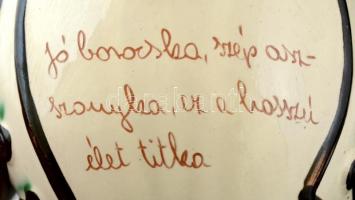 jó borocska, szép asz-
szonyka, ez a hosszú
élet titka